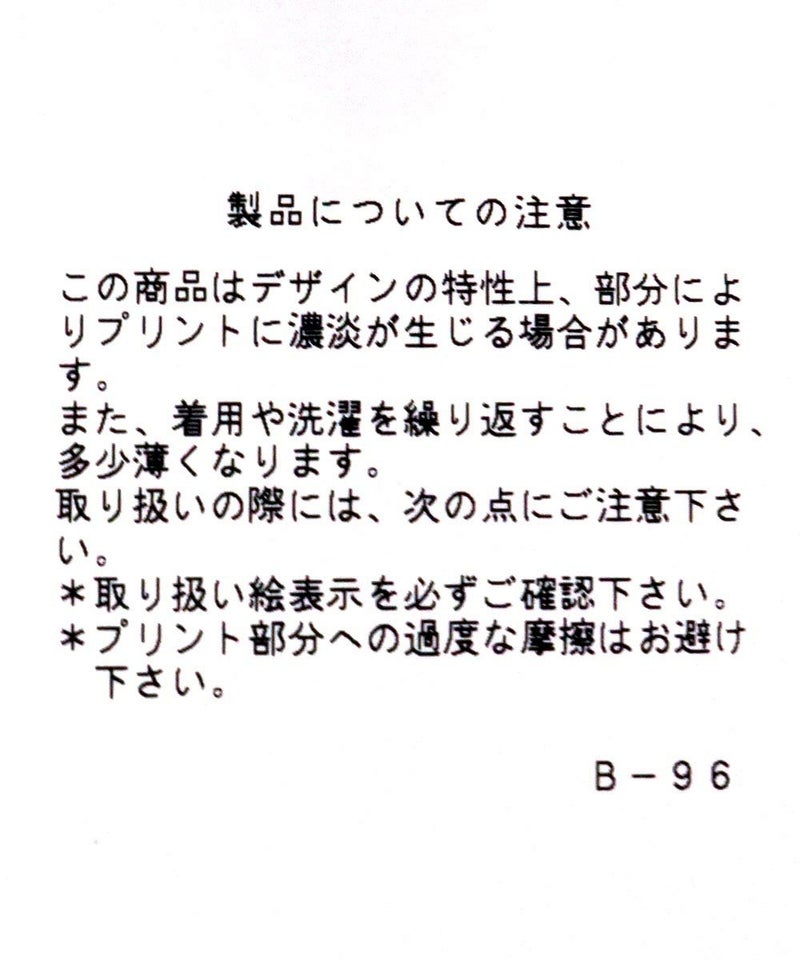 製品についての注意
この商品はデザインの特性上、部分によ
りプリントに濃淡が生じる場合がありま
す。
また、着用や洗濯を繰り返すことにより、
多少薄くなります。
取り扱いの際には、次の点にご注意下さ
い。
＊取り扱い絵表示を必ずご確認下さい。
＊プリント部分への過度な摩擦はお避け
下さい。
B－96